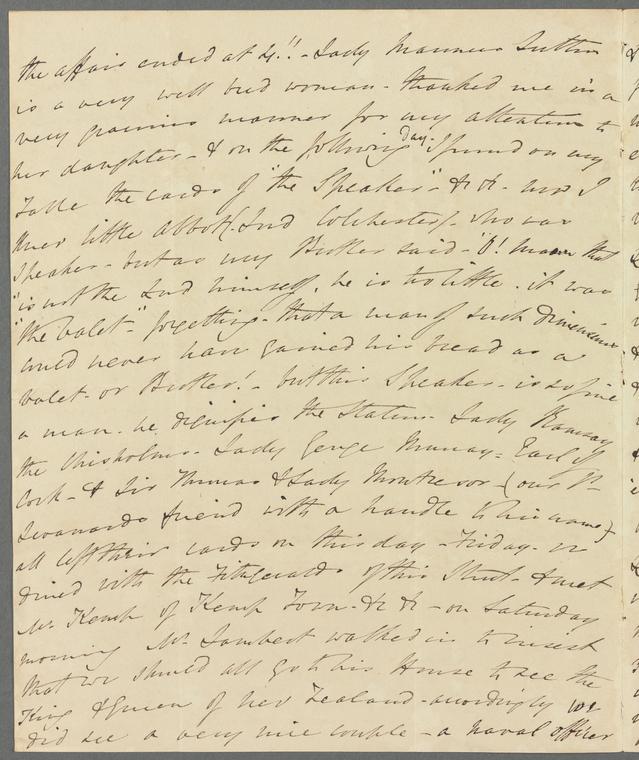 the affair ended at 4!! - Lady Manners Sutton
is a very well bred woman - thanked me in a
very gracious manner for my attention to
her daughter - & on the following day - I found on my
Table the cards of "the Speaker" - &c &c - and I
knew little Abbot (Lord Colchester) - who was
Speaker - but as my Butler said - "O! ma'am that
"is not the Lord himself, he is too little. it was
"the valet -" forgetting - that a man of such Dimensions
could never have gained his bread as a
valet - or Butler! - but this Speaker - is so fine
a man - he dignifies the Station - Lady Ramsay
the Chisholms - Lady George Murray - Earl of
Cork - & Sir Thomas & Lady Montresor - (our St
Leonards friend with a handle to his name)
all left their cards on this day - Friday - we
dined with the Fitzgeralds of this Street - & met
Mr Kemp of Kemp Town - &c &c - on Saturday
morning Mr Lambert walked in to insist
that we should all go to his House to see the
King & Queen of New Zealand - accordingly we
did see a very nice couple - a naval officer